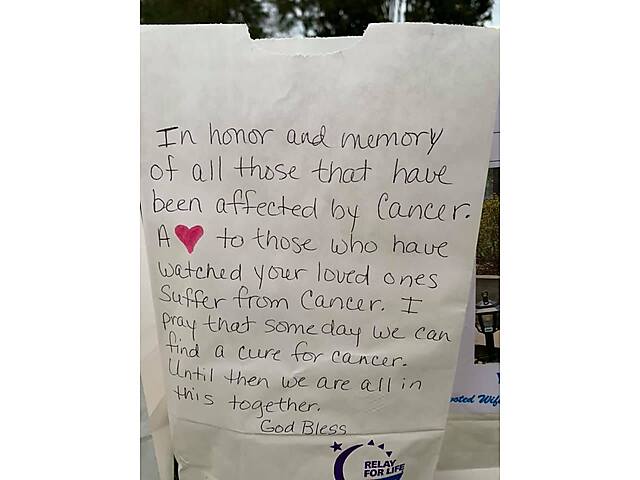 In honor and memory
of all those that have
been affected by Cancer.
A ♥ to those who have
watched your loved ones
Suffer from Cancer. I
pray that someday we can
find a cure for cancer.
Until then we are all in
this together.
God Bless
RELAY
FOR LIFE